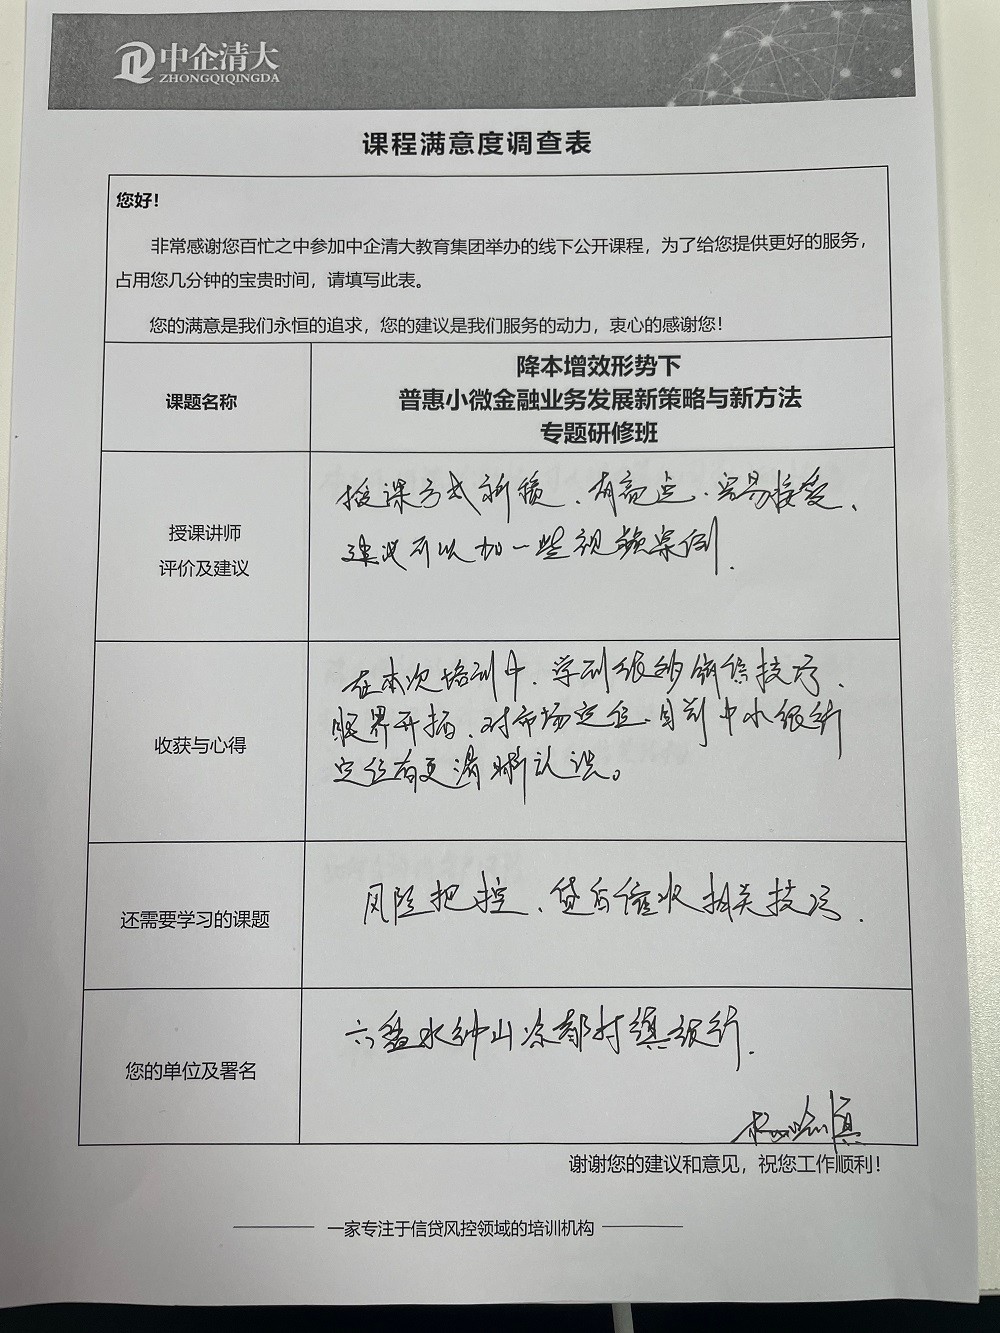 中企清大
ZHONGQIQINGDA
课程满意度调查表
您好！
非常感谢您百忙之中参加中企清大教育集团举办的线下公开课程，为了给您提供更好的服务，
占用您几分钟的宝贵时间，请填写此表。
您的满意是我们永恒的追求，您的建议是我们服务的动力，衷心的感谢您！
课题名称
降本增效形势下
普惠小微金融业务发展新策略与新方法
专题研修班
授课讲师
评价及建议
授课方式新颖、有亮点、容易接受、
建议可以加一些视频案例.
收获与心得
在本次培训中、学到很多销售技巧、
眼界开拓、对市场定位、目前中小银行
定位有更清晰认识。
还需要学习的课题
风险把控、贷后催收相关技巧.
您的单位及署名
六盘水钟山凉都村镇银行.
谢谢您的建议和意见，祝您工作顺利！
一家专注于信贷风控领域的培训机构